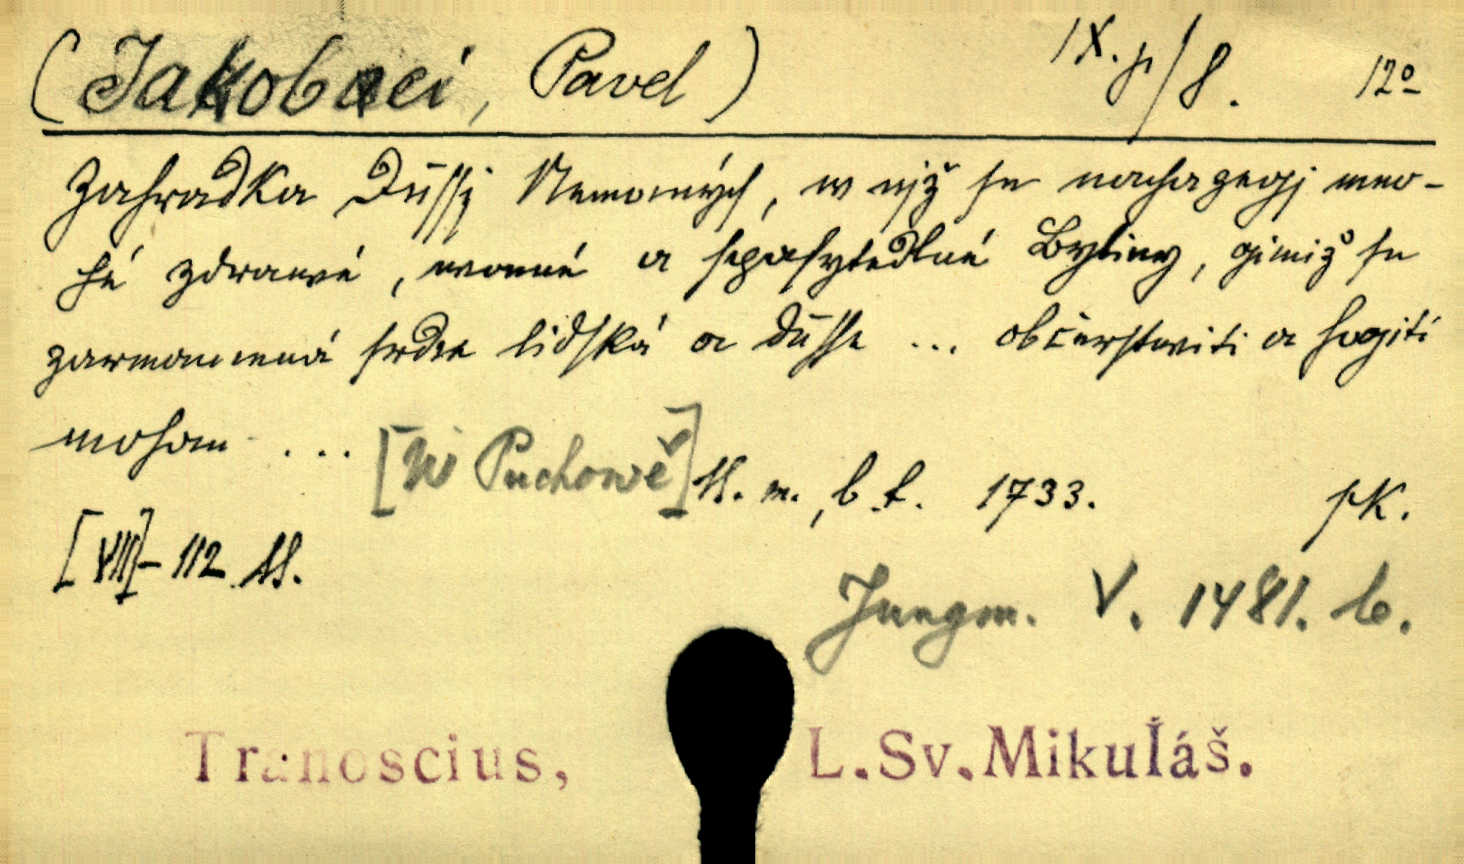 (Jakobaei, Pavel) IX. p/8. 12º
Zahradka Dussj Nemocných, w njž se nachazegj mno-
hé zdrawé, wonné a sspasytedlné Byliny, gimiž se
zarmaucená srdce lidská a dusse ... občerstwiti a hogiti
mohau ... [W Puchowě] M. m., b. t. 1733. pK.
[VIII]-112 ll.
Jungm. V. 1481. b.
Tranoscius, L.Sv.Mikuláš.